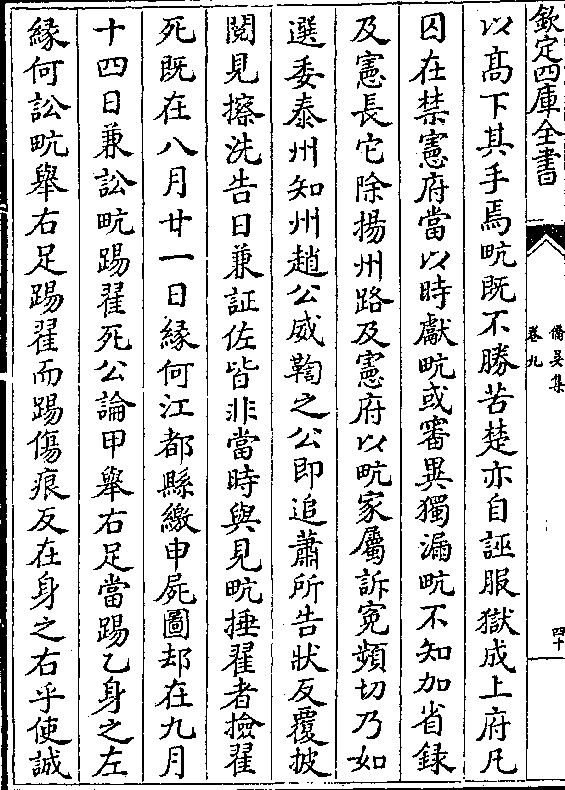 欽定四庫全書
僑吳集
卷九
四十
以髙下其手焉畝既不勝苦楚亦自誣服獄成上府凡
囚在禁憲府當以時讞畝或審異獨漏畝不知加省録
及憲長它除揚州路及憲府以畝家屬訴寃頻切乃如
選委泰州知州趙公威鞫之公即追蕭所告狀反覆披
閲見擦洗告日兼証佐皆非當時與見畝捶翟者撿翟
死既在八月廿一日緣何江都縣繳申屍圖却在九月
十四日兼訟畝踢翟死公論甲舉右足當踢乙身之左
緣何訟畝舉右足踢翟而踢傷痕反在身之右乎使誠